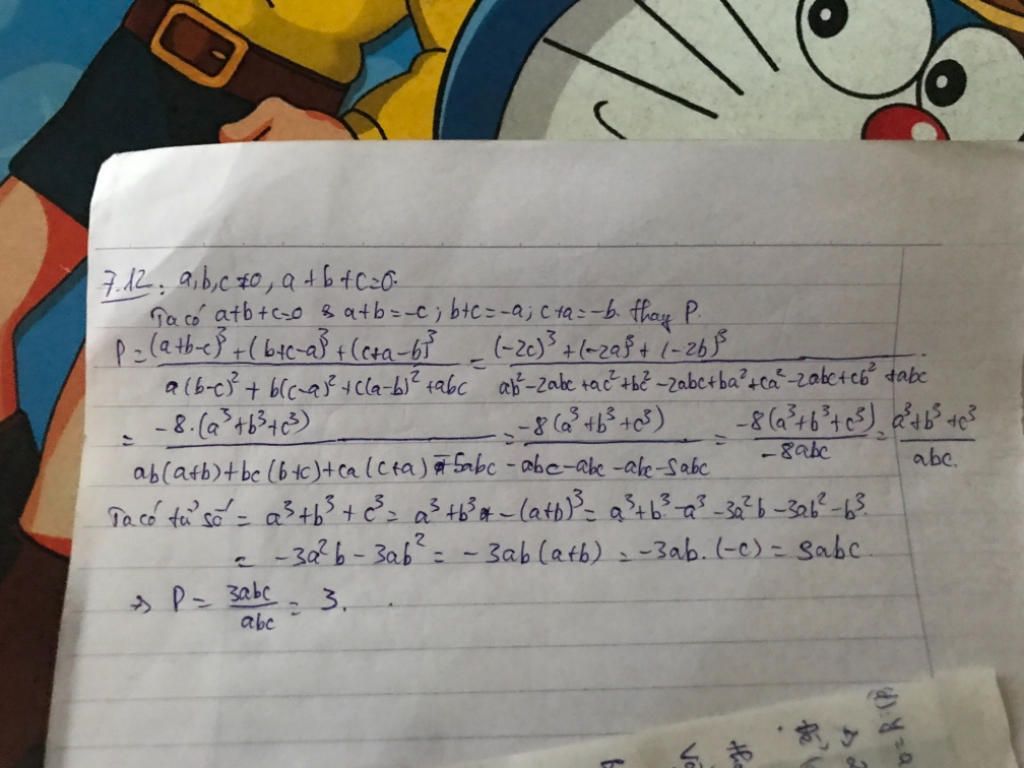 7.12: a,b,c≠0, a+b+c=0.
Ta có a+b+c=0 a+b=-c; b+c=-a; c+a=-b. thay P.
P = \frac{(a+b-c)^3+(b+c-a)^3+(c+a-b)^3}{a(b-c)^2+b(c-a)^2+c(a-b)^2+abc} = \frac{(-2c)^3+(-2a)^3+(-2b)^3}{ab^2-2abc+ac^2+bc^2-2abc+ba^2+ca^2-2abc+cb^2+abc}
= \frac{-8.(a^3+b^3+c^3)}{ab(a+b)+bc(b+c)+ca(c+a)-5abc} = \frac{-8(a^3+b^3+c^3)}{-abc-abc-abc-5abc} = \frac{-8(a^3+b^3+c^3)}{-8abc} = \frac{a^3+b^3+c^3}{abc.}
Ta có tử số = a^3+b^3+c^3 = a^3+b^3-(a+b)^3 = a^3+b^3-a^3-3a^2b-3ab^2-b^3.
= -3a^2b-3ab^2 = -3ab(a+b) = -3ab.(-c) = 3abc.
⇒ P = \frac{3abc}{abc} = 3.